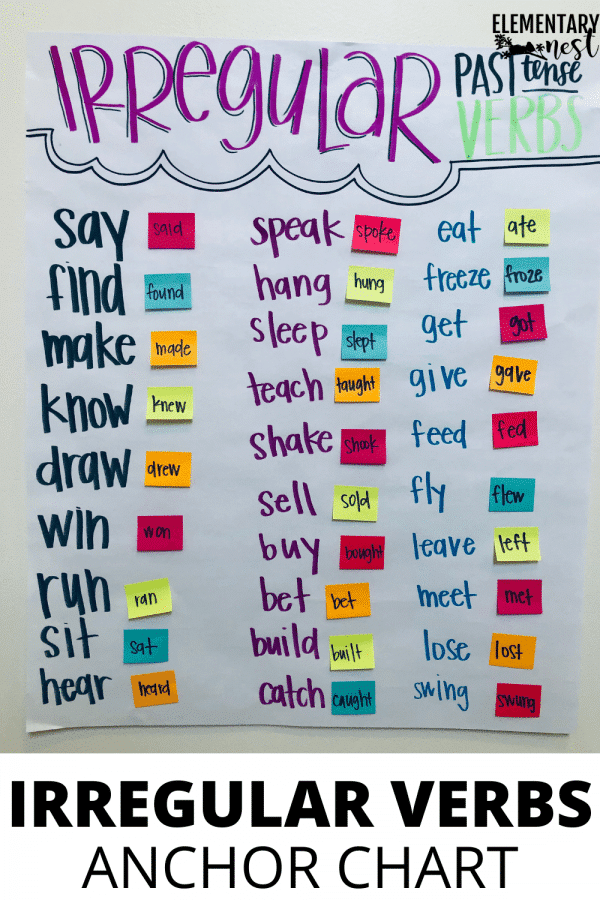 ELEMENTARY
nest
IRREGULAR PAST tense
VERBS
say said
find found
make made
know knew
draw drew
win won
run ran
sit sat
hear heard
speak spoke
hang hung
sleep slept
teach taught
shake shook
sell sold
buy bought
bet bet
build built
catch caught
eat ate
freeze froze
get got
give gave
feed fed
fly flew
leave left
meet met
lose lost
swing swung
IRREGULAR VERBS
ANCHOR CHART